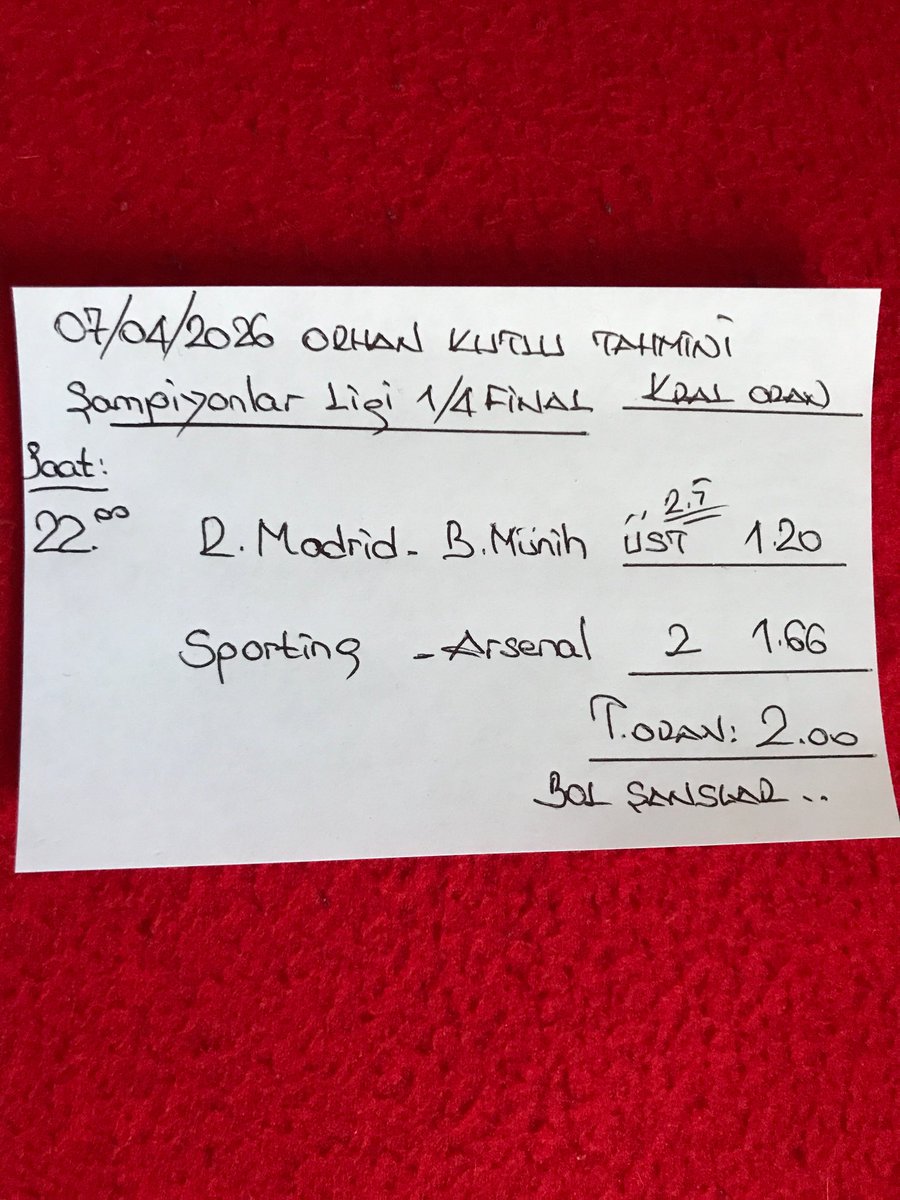 07/04/2026 ORHAN KUTLU TAHMİNİ
Şampiyonlar Ligi 1/4 FİNAL KRAL ORAN
Saat:
22.00 R. Madrid - B. Münih ÜST 2.5 1.20
Sporting - Arsenal 2 1.66
T.ORAN: 2.00
BOL ŞANSLAR..